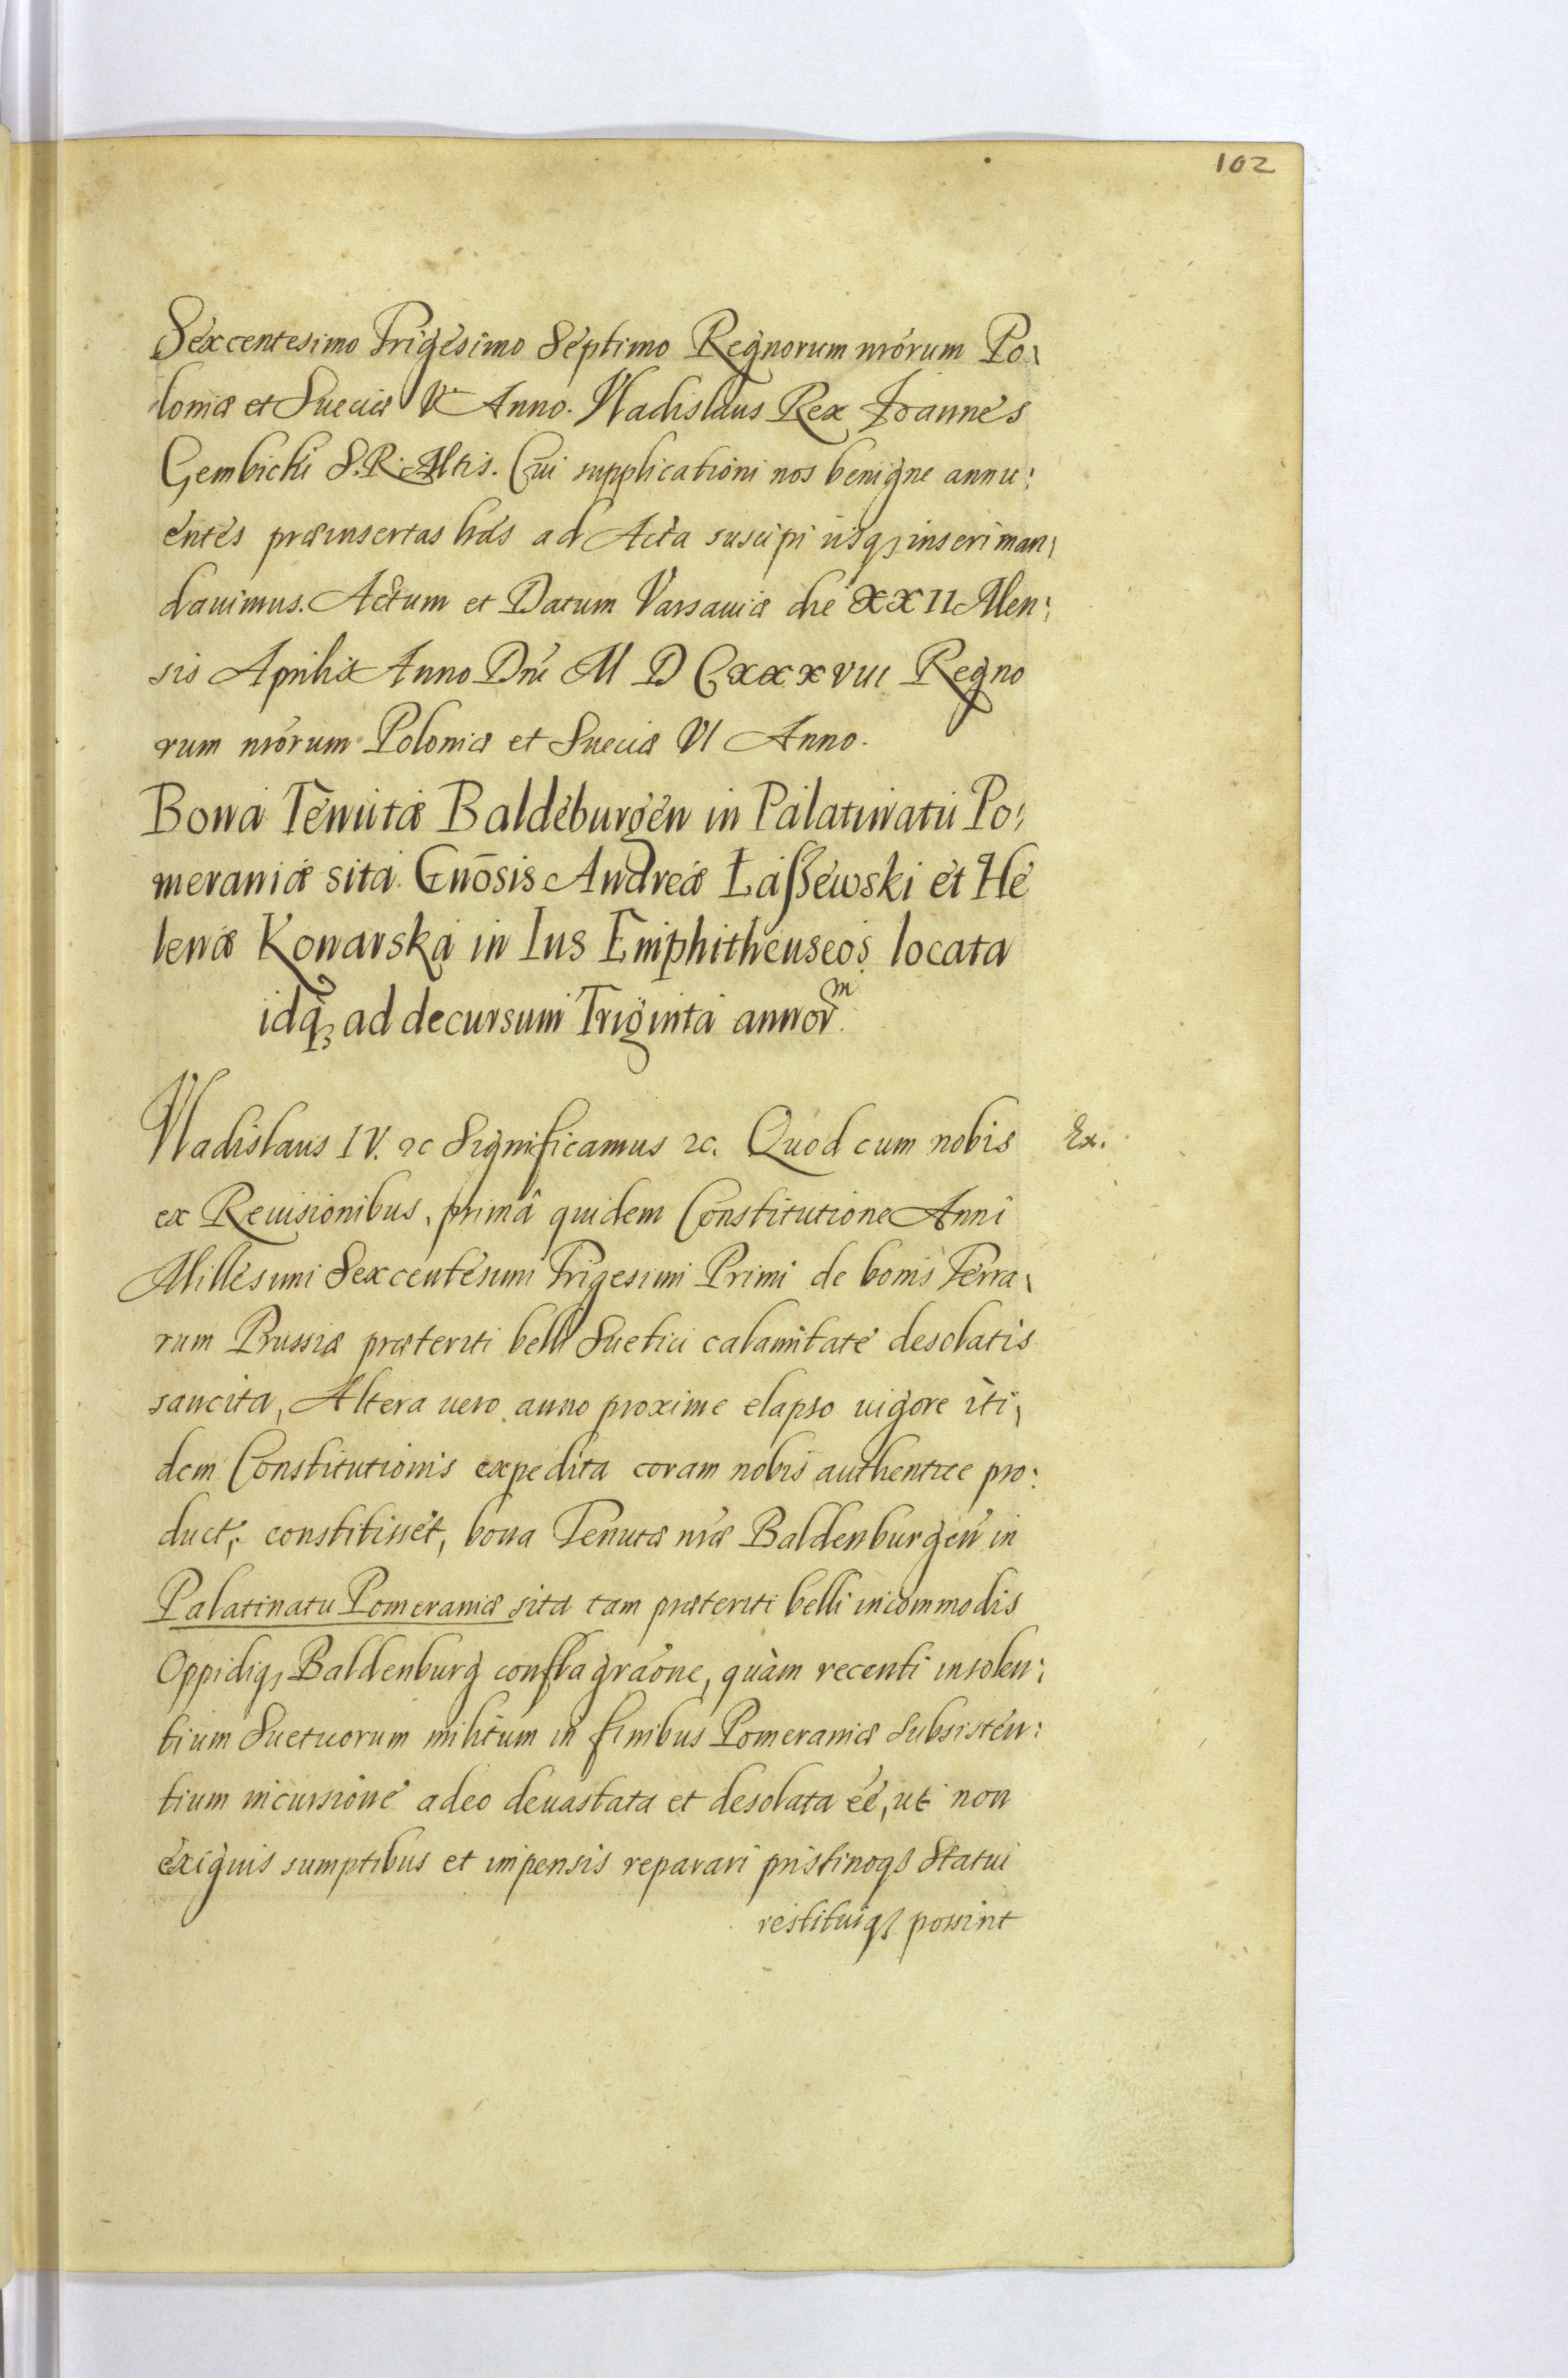 102
Sexcentesimo Trigesimo Septimo Regnorum nrórum Po:
loniæ et Sueciæ V. Anno. Vladislaus Rex Joannes
Gembicki S. R. Mtis. Cui supplicationi nos benigne annu:
entes præinsertas lras ad Acta suscipi iisq, inseri man:
dauimus. Actum et Datum Varsauiæ die XXII Men:
sis Aprilis Anno Dni M D C xxx viii Regno
rum nrórum Poloniæ et Sueciæ VI Anno.
Bona Tenutæ Baldeburgen in Palatinatu Po:
meraniæ sita Gnōsis Andreæ Laßewski et He
lenæ Konarska in Ius Emphitheuseos locata
idq, ad decursum Triginta annorm.
Vladislaus IV. &c Significamus &c. Quod cum nobis
Ex.
ex Reuisionibus, primâ quidem Constitutione Anni
Millesimi Sexcentesimi Trigesimi Primi de bonis Terra:
rum Prussiæ præteriti belli Suetici calamitate desolatis
sancita, Altera uero anno proxime elapso uigore iti:
dem Constitutionis expedita coram nobis authentice pro:
duct: constitisset, bona Tenutæ nræ Baldenburgen in
Palatinatu Pomeraniæ sita tam præteriti belli incommodis
Oppidiq, Baldenburg conflagraōne, quàm recenti insolen:
tium Sueticorum militum in finibus Pomeraniæ subsisten:
tium incursione adeo deuastata et desolata eé, ut non
exiguis sumptibus et impensis reparari pristinoq, Statui
restituiq, possint